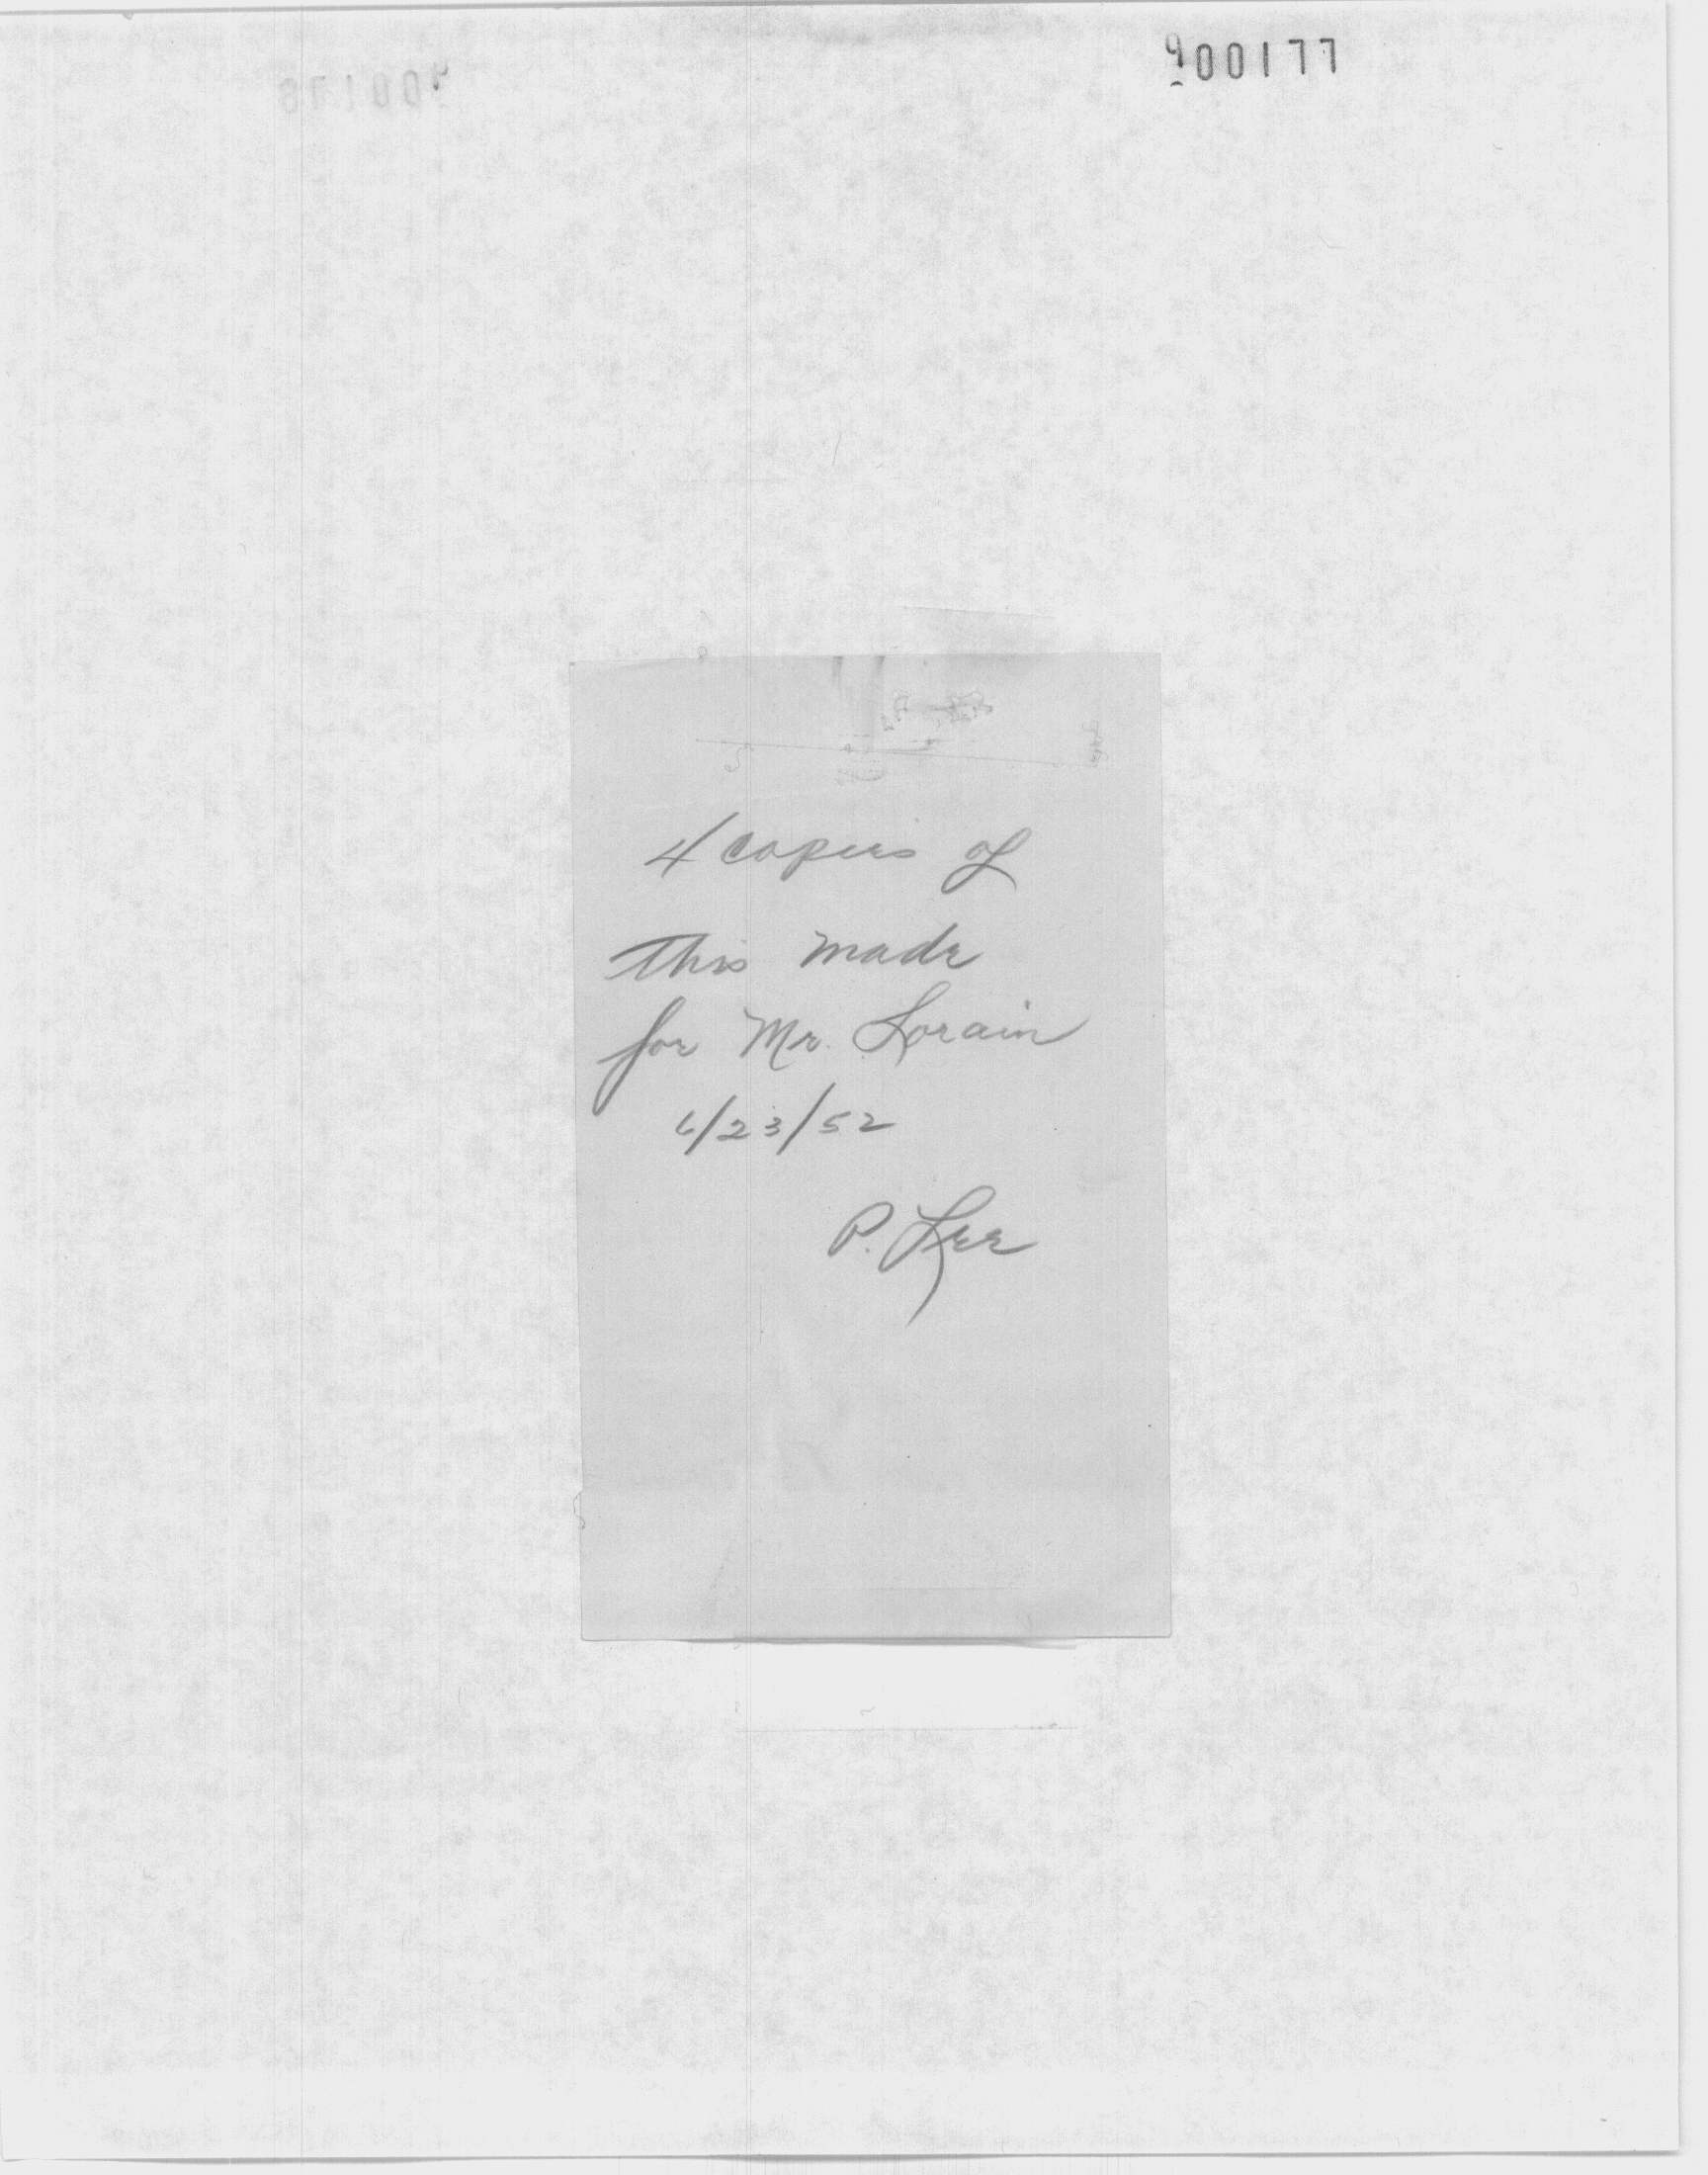 900177
4 copies of
this made
for Mr. Lorain
6/23/52
P. Lee